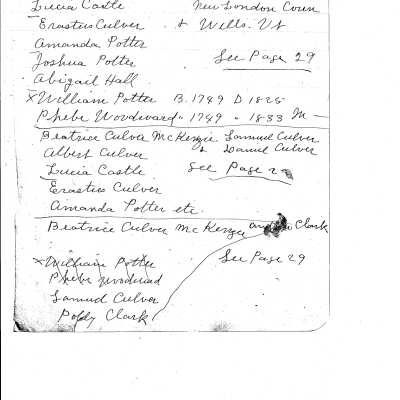 Lucia Castle New London Conn
Erastus Culver & Wells. Vt
Amanda Potter
Joshua Potter See Page 29
Abigail Hall
x William Potter B. 1749 D 1825
Phebe Woodward " 1749 " 1833 M —
Beatrice Culver McKenzie Samuel Culver
Albert Culver & Daniel Culver
Lucia Castle See Page 29
Erastus Culver
Amanda Potter etc.
Beatrice Culver McKenzie Clark
x William Potter See Page 29
Phebe Woodward
Samuel Culver
Polly Clark